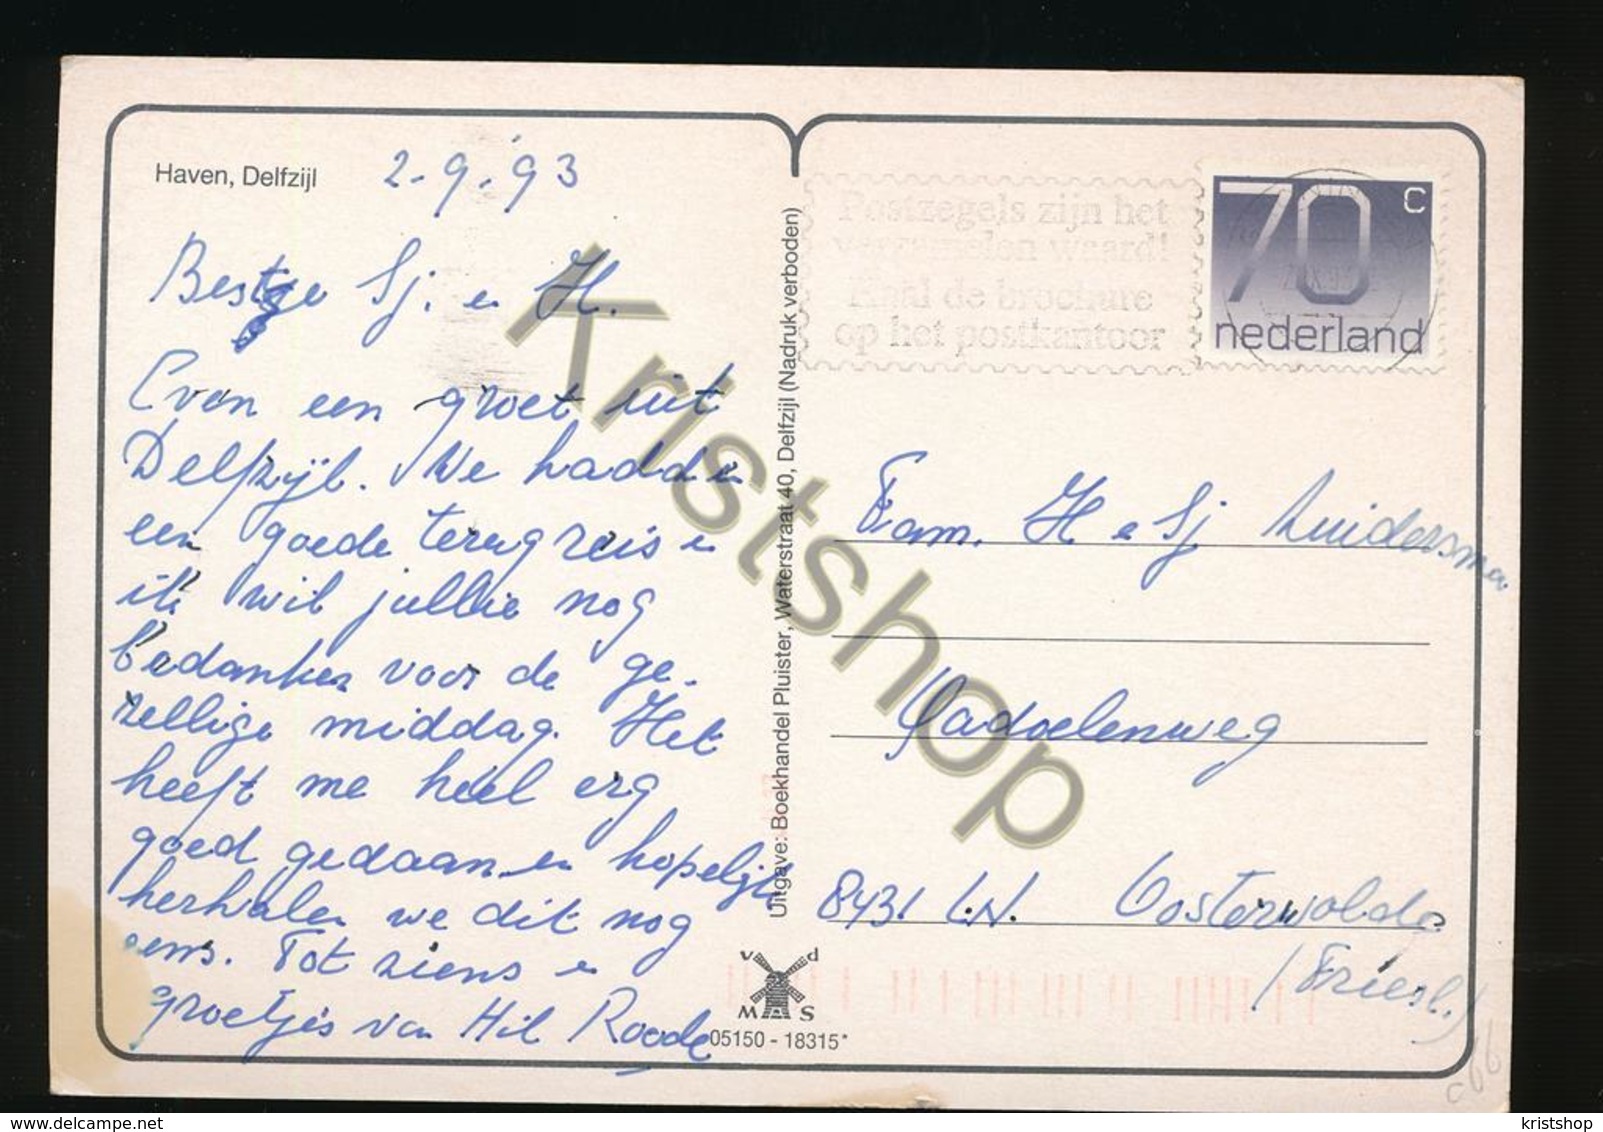 Haven, Delfzijl
2-9-'93
Beste Sj. en H.
Even een groet uit
Delfzijl. We hadden
een goede terugreis en
ik wil jullie nog
bedanken voor de ge-
zellige middag. Het
heeft me heel erg
goed gedaan en hopelijk
herhalen we dit nog
eens. Tot ziens en
groetjes van Hil Roode
Uitgave: Boekhandel Pluister, Waterstraat 40, Delfzijl (Nadruk verboden)
v d
M S
05150 - 18315*
Postzegels zijn het
verzamelen waard!
Haal de brochure
op het postkantoor
70 c
nederland
Fam. H e Sj Luidersma
8431 L.N. Oosterwolde
(Friesl.)
Kristshop
delcampe.net
kristshop